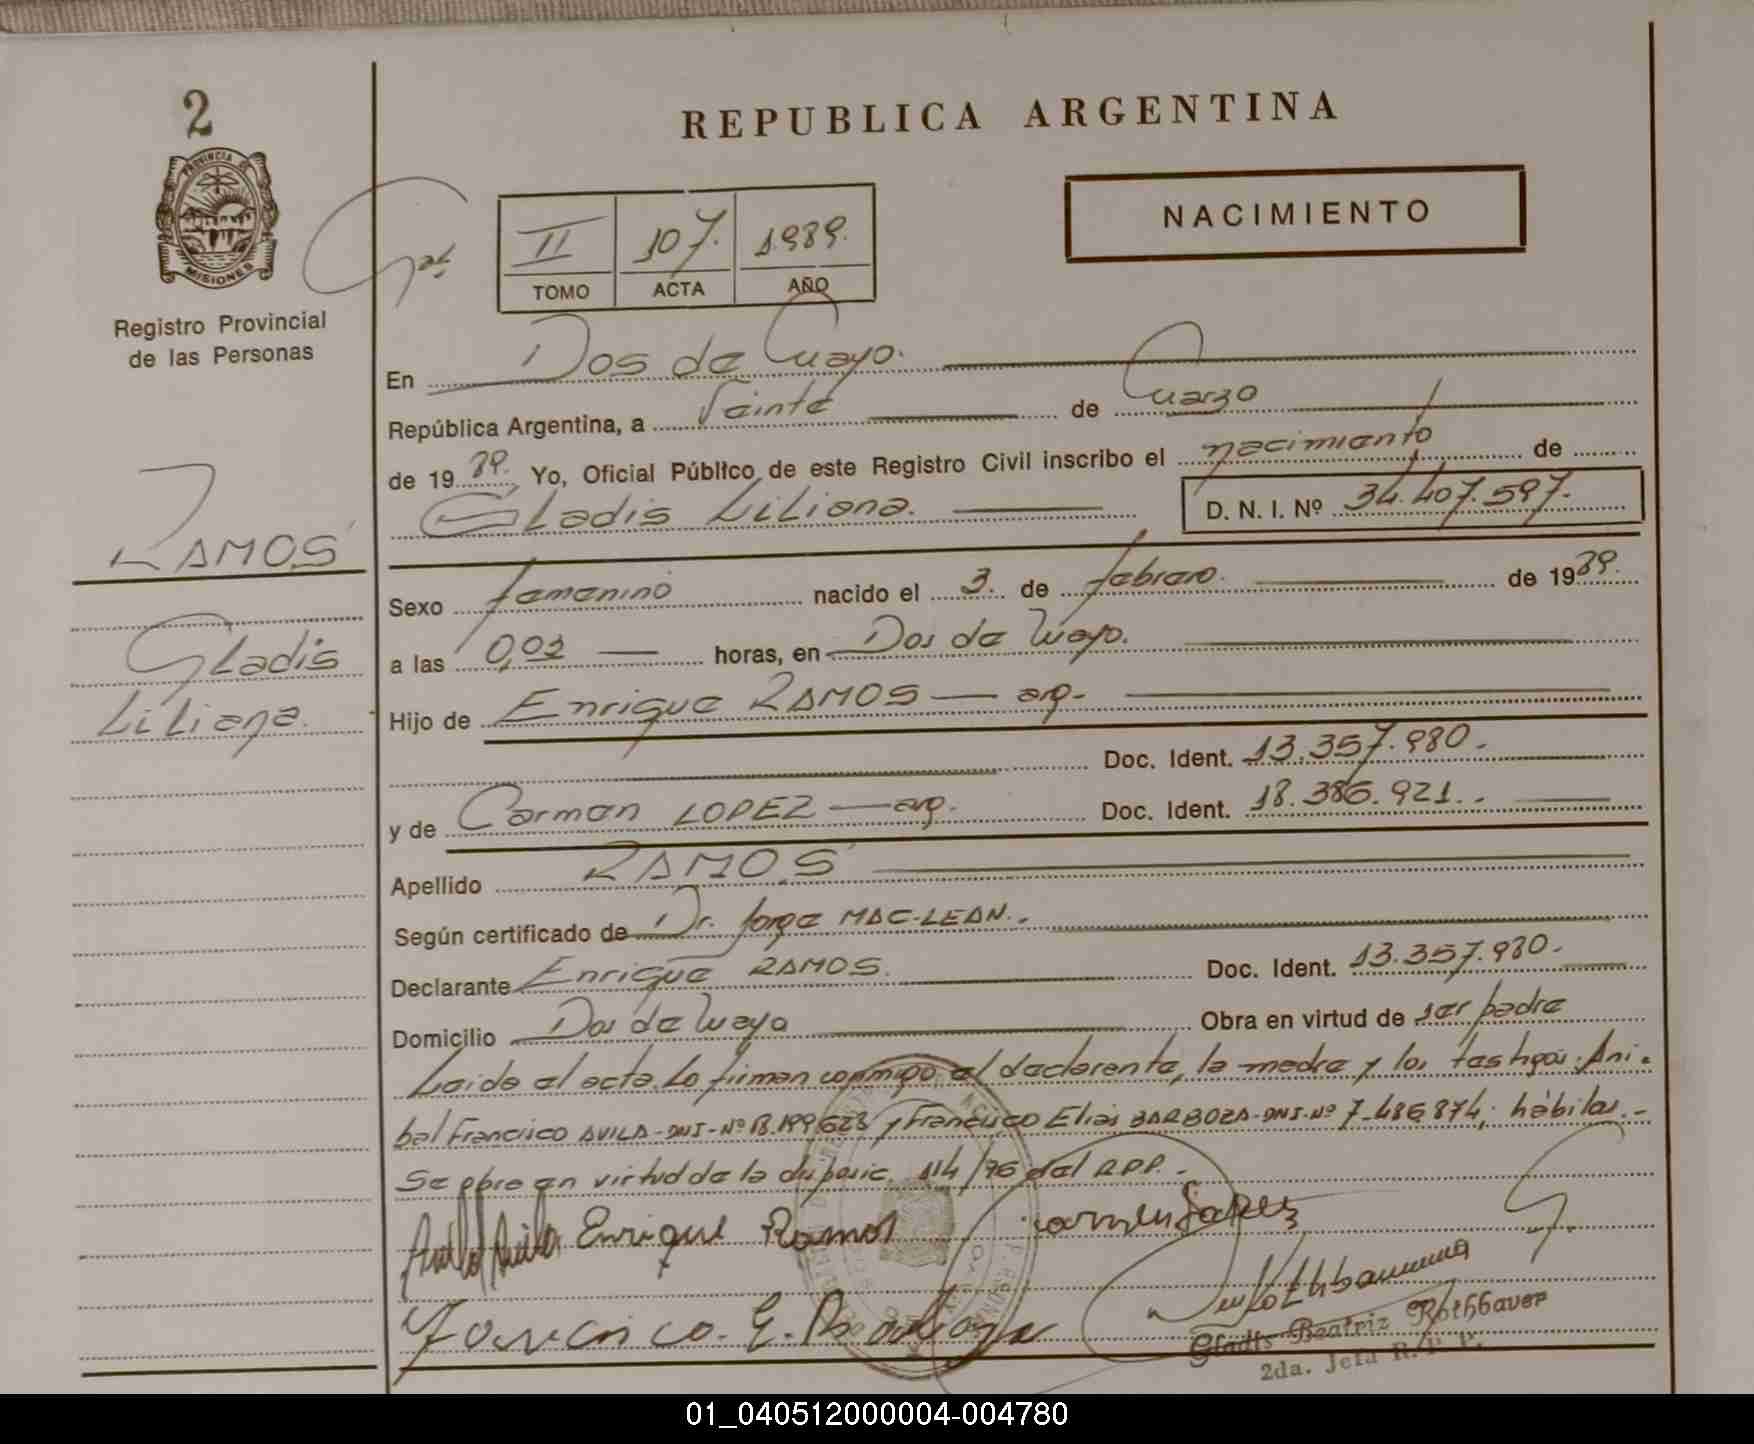 2
PROVINCIA DE
MISIONES
Registro Provincial
de las Personas
RAMOS
Gladis
Liliana.
REPUBLICA ARGENTINA
NACIMIENTO
II 107. 1989.
TOMO ACTA AÑO
En Dos de Mayo.
República Argentina, a Veinte de Marzo
de 19 89. Yo, Oficial Público de este Registro Civil inscribo el nacimiento de
Gladis Liliana. D. N. I. Nº 34.407.597.
Sexo femenino nacido el 3. de febrero. de 19 89.
a las 0,03 horas, en Dos de Mayo.
Hijo de Enrique RAMOS — arg.
Doc. Ident. 13.357.980.
y de Carmen LOPEZ — arg. Doc. Ident. 18.386.921.
Apellido RAMOS
Según certificado de Dr. Jorge MAC-LEAN.
Declarante Enrique RAMOS. Doc. Ident. 13.357.980.
Domicilio Dos de Mayo Obra en virtud de ser padre
Leida el acta. Lo firman conmigo el declarante, la madre y los testigos: Ani-
bal Francisco AVILA-DNI-Nº 18.199623 y Francisco Elias BARBOZA-DNI-Nº 7.486874; hábiles.-
Se obra en virtud de la disposic. 114/76 del RPP.-
Anibal Avila Enrique Ramos Carmen Lopez
Francisco. E. Barboza
Gladis Beatriz Rothbauer
2da. Jefa R. P. P.
01_040512000004-004780